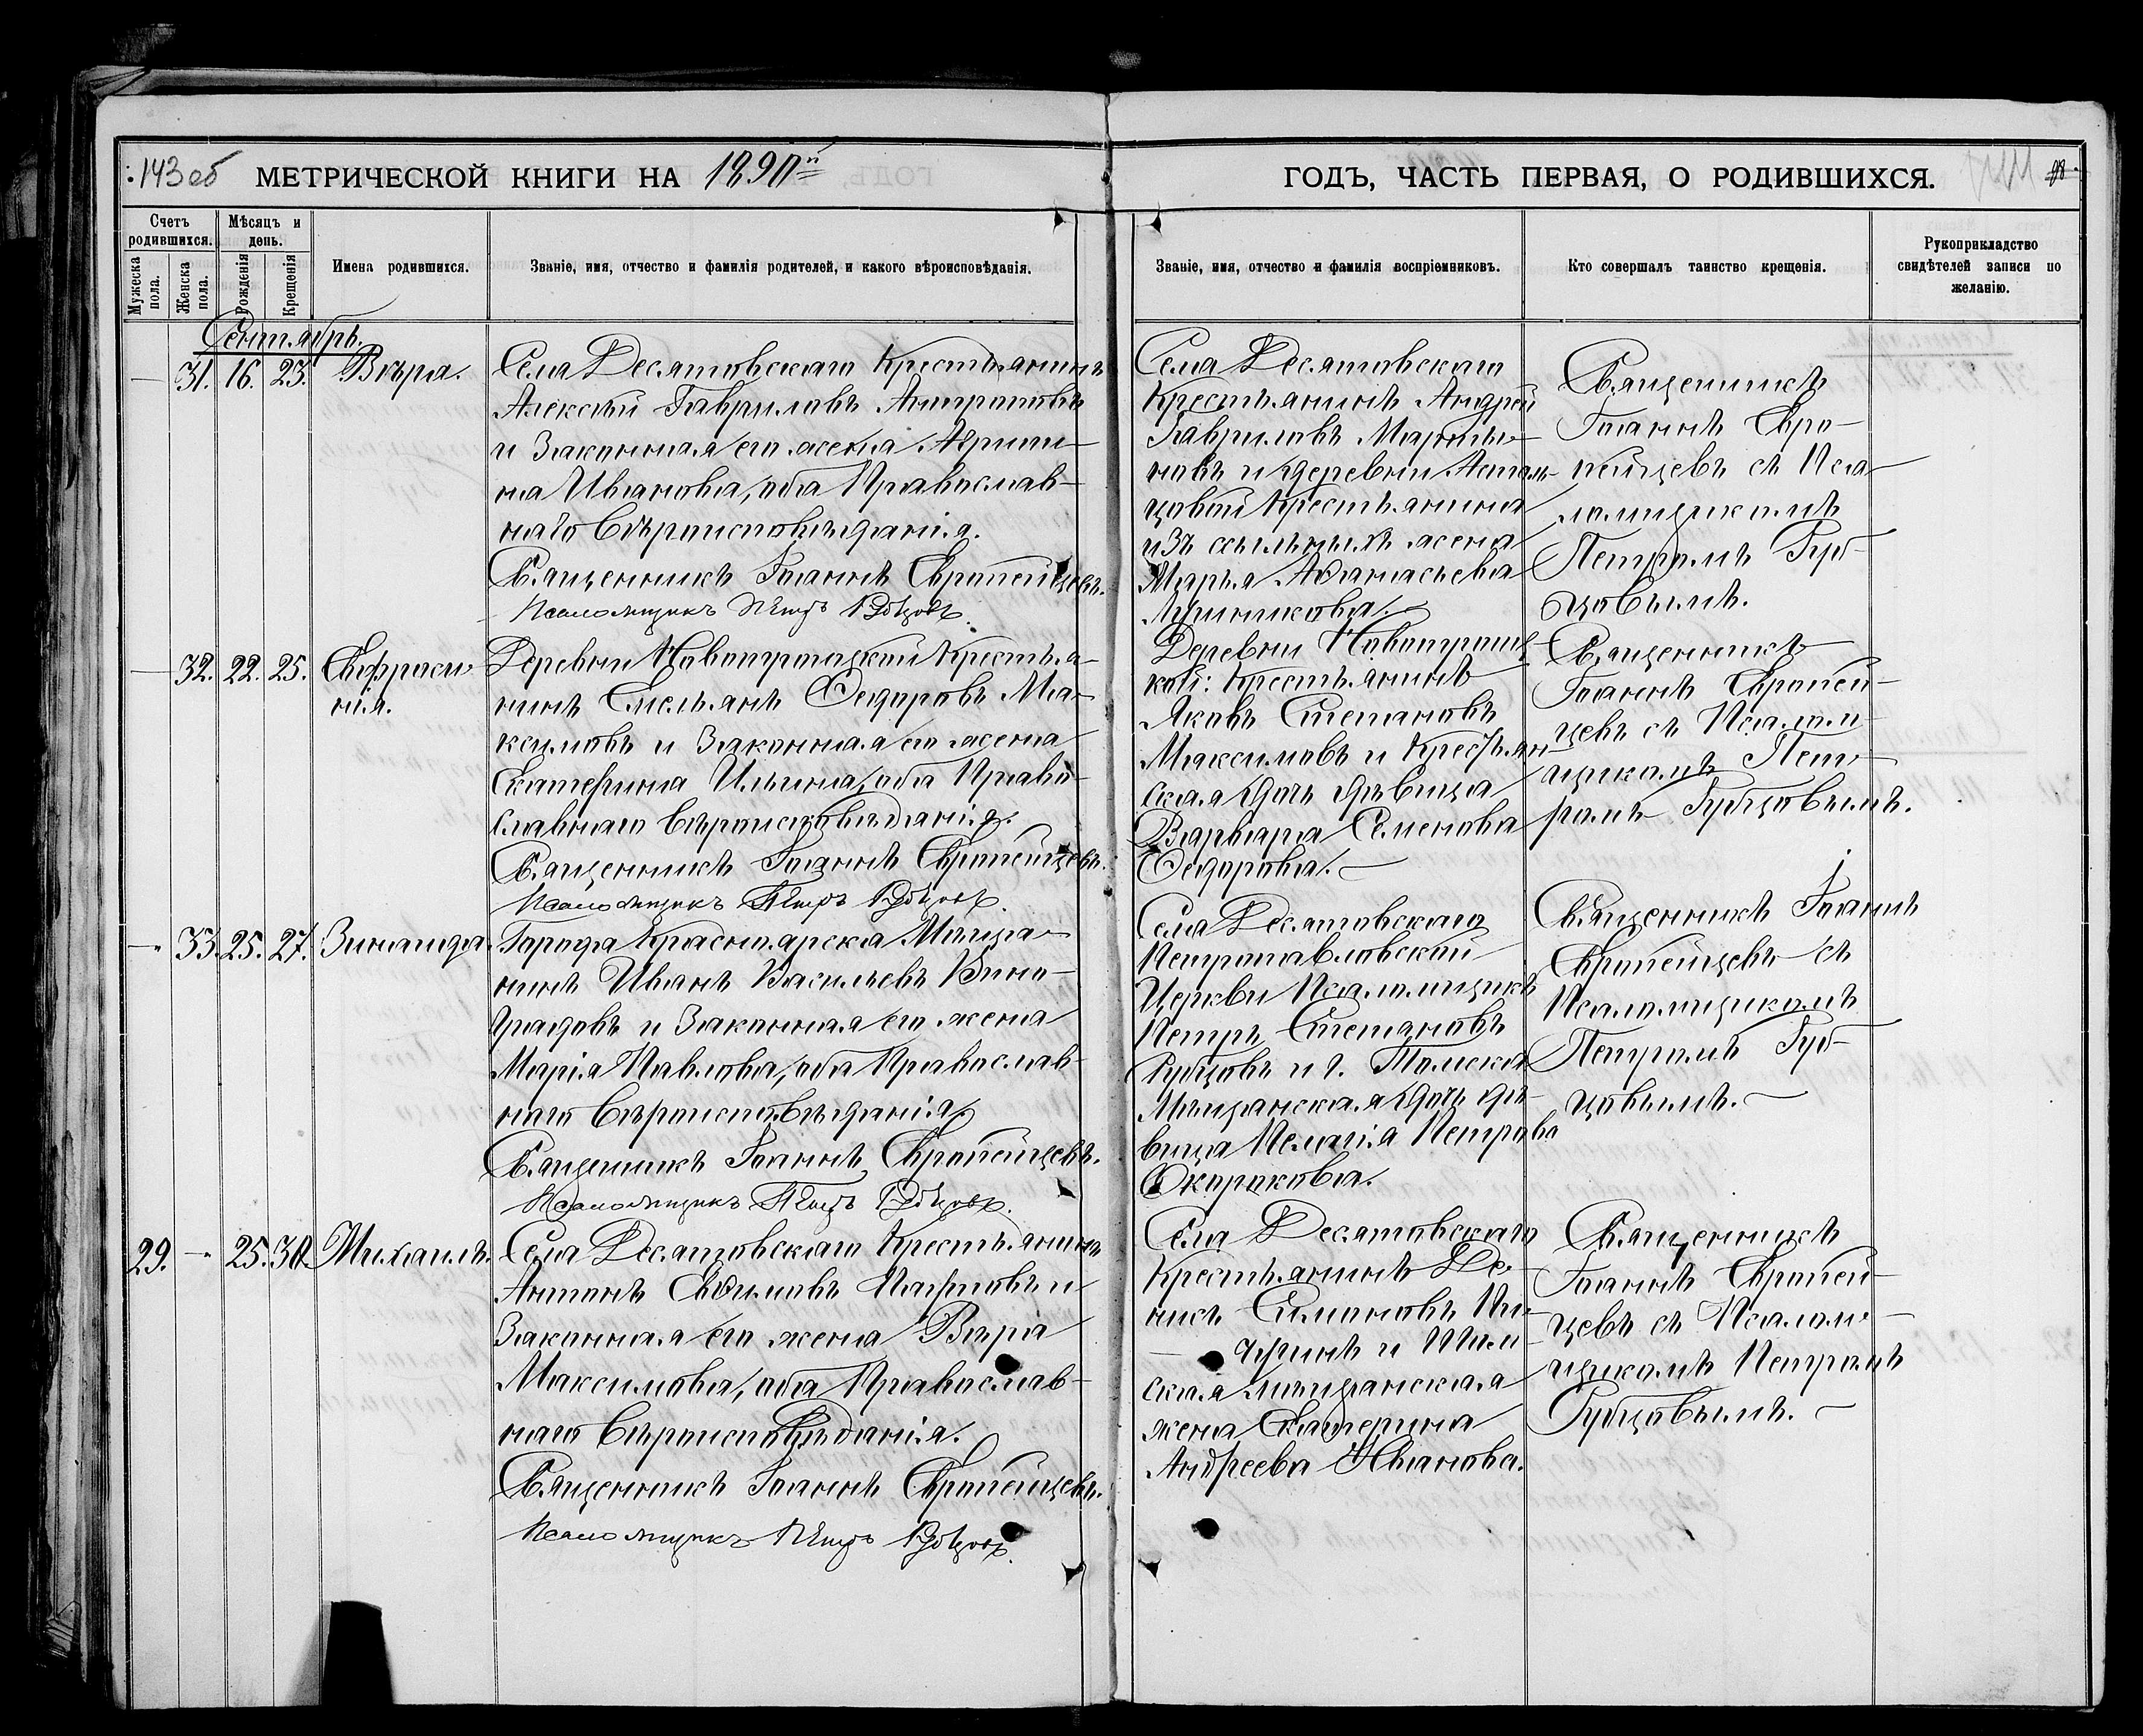 143 об
МЕТРИЧЕСКОЙ КНИГИ НА 1890й
ГОДЪ, ЧАСТЬ ПЕРВАЯ, О РОДИВШИХСЯ.
Счетъ родившихся.
Мужеска пола.
Женска пола.
Мѣсяцъ и день.
Рожденія
Крещенія
Имена родившихся.
Званіе, имя, отчество и фамилія родителей, и какого вѣроисповѣданія.
Званіе, имя, отчество и фамилія воспріемниковъ.
Кто совершалъ таинство крещенія.
Рукоприкладство свидѣтелей записи по желанію.
Сентябрь.
— 31. 16. 23. Вѣра.
Села Десятовскаго Крестьянинъ
Алексѣй Гавриловъ Антроповъ
и Законная его жена Агрипи-
на Иванова, оба Православ-
наго Вѣроисповѣданія.
Священникъ Іоаннъ Европейцевъ.
Псаломщикъ Петръ Рубцовъ.
Села Десятовскаго
Крестьянинъ Андрей
Гавриловъ Марты-
новъ и деревни
цовой Крестьянина
изъ ссыльныхъ жена
Марья Аѳанасьева
Священникъ
Іоаннъ Евро-
пейцевъ съ Пса-
ломщикомъ
Петромъ Руб-
цовымъ.
— 32. 22. 25. Евфраси-
нія.
Деревни Новотроицкой Крестья-
нинъ Емельянъ Ѳедоровъ Ма-
ксимовъ и Законная его жена
Екатерина Ильина, оба Право-
славнаго Вѣроисповѣданія.
Священникъ Іоаннъ Европейцевъ.
Псаломщикъ Петръ Рубцовъ.
Деревни Новотроиц-
кой: Крестьянинъ
Яковъ Степановъ
Максимовъ и Крестьян-
ская дочь дѣвица
Варвара Семенова
Ѳедорова. —
Священникъ
Іоаннъ Европей-
цевъ съ Псалом-
щикомъ Пет-
ромъ Рубцовымъ.
— 33. 25. 27. Зинаида.
Города Красноярска Мѣща-
нинъ Иванъ Васильевъ Вино-
градовъ и Законная его жена
Марія Павлова, оба Православ-
наго Вѣроисповѣданія.
Священникъ Іоаннъ Европейцевъ.
Псаломщикъ Петръ Рубцовъ.
Села Десятовскаго
Петропавловской
Церкви Псаломщикъ
Петръ Степановъ
Рубцовъ и г. Томска
Мѣщанская дочь дѣ-
вица Пелагія Петрова
Скоракова.
Священникъ Іоаннъ
Европейцевъ съ
Псаломщикомъ
Петромъ Руб-
цовымъ. —
29. — 25. 30. Михаилъ.
Села Десятовскаго Крестьянинъ
Антонъ Евѳимовъ и
Законная его жена
Максимова, оба Православ-
наго Вѣроисповѣданія.
Священникъ Іоаннъ Европейцевъ.
Псаломщикъ Петръ Рубцовъ.
Села Десятовскаго
Крестьянинъ Де-
нисъ Симоновъ Пи-
чугинъ и Том-
ская мѣщанская
жена Екатерина
Андреева Иванова.
Священникъ
Іоаннъ Европей-
цевъ съ Псалом-
щикомъ Петромъ
Рубцовымъ. —